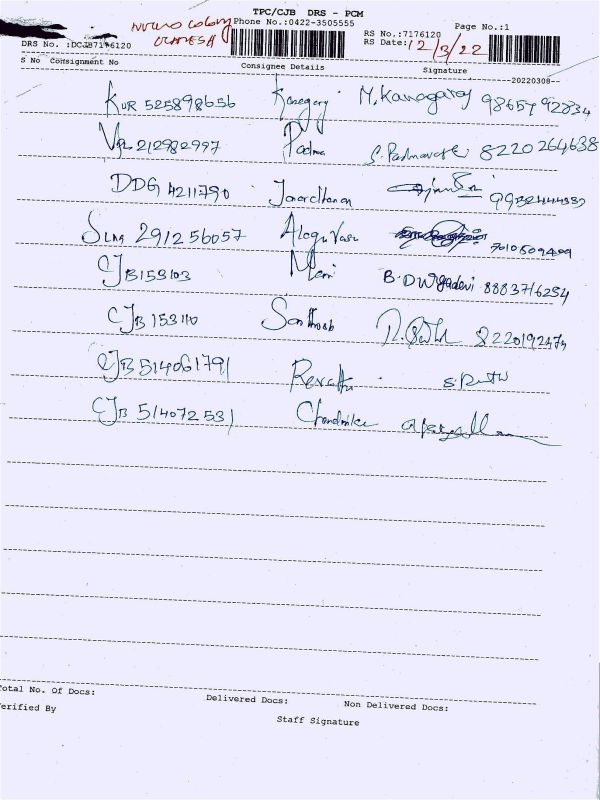 TPC/CJB DRS - PCM
Phone No.:0422-3505555
Page No.:1
RS No.:7176120
DRS No. :DCJB7176120
RS Date: 12/3/22
S No Consignment No Consignee Details Signature
--20220308--
KUR 525898656 Kanagaraj M.Kanagaraj 98657 92834
212982997 Padma S. Padmavathi 8220264638
DDG 4211790 Janardhanan
SLM 291256057 Alagu Vasu
CJB 153103 Mani B. Durgadevi 8883716254
CJB 153110 Santhosh 8220192474
CJB 514061791 Revathi
CJB 514072531 Chandrika
Total No. Of Docs: Delivered Docs: Non Delivered Docs:
Verified By Staff Signature